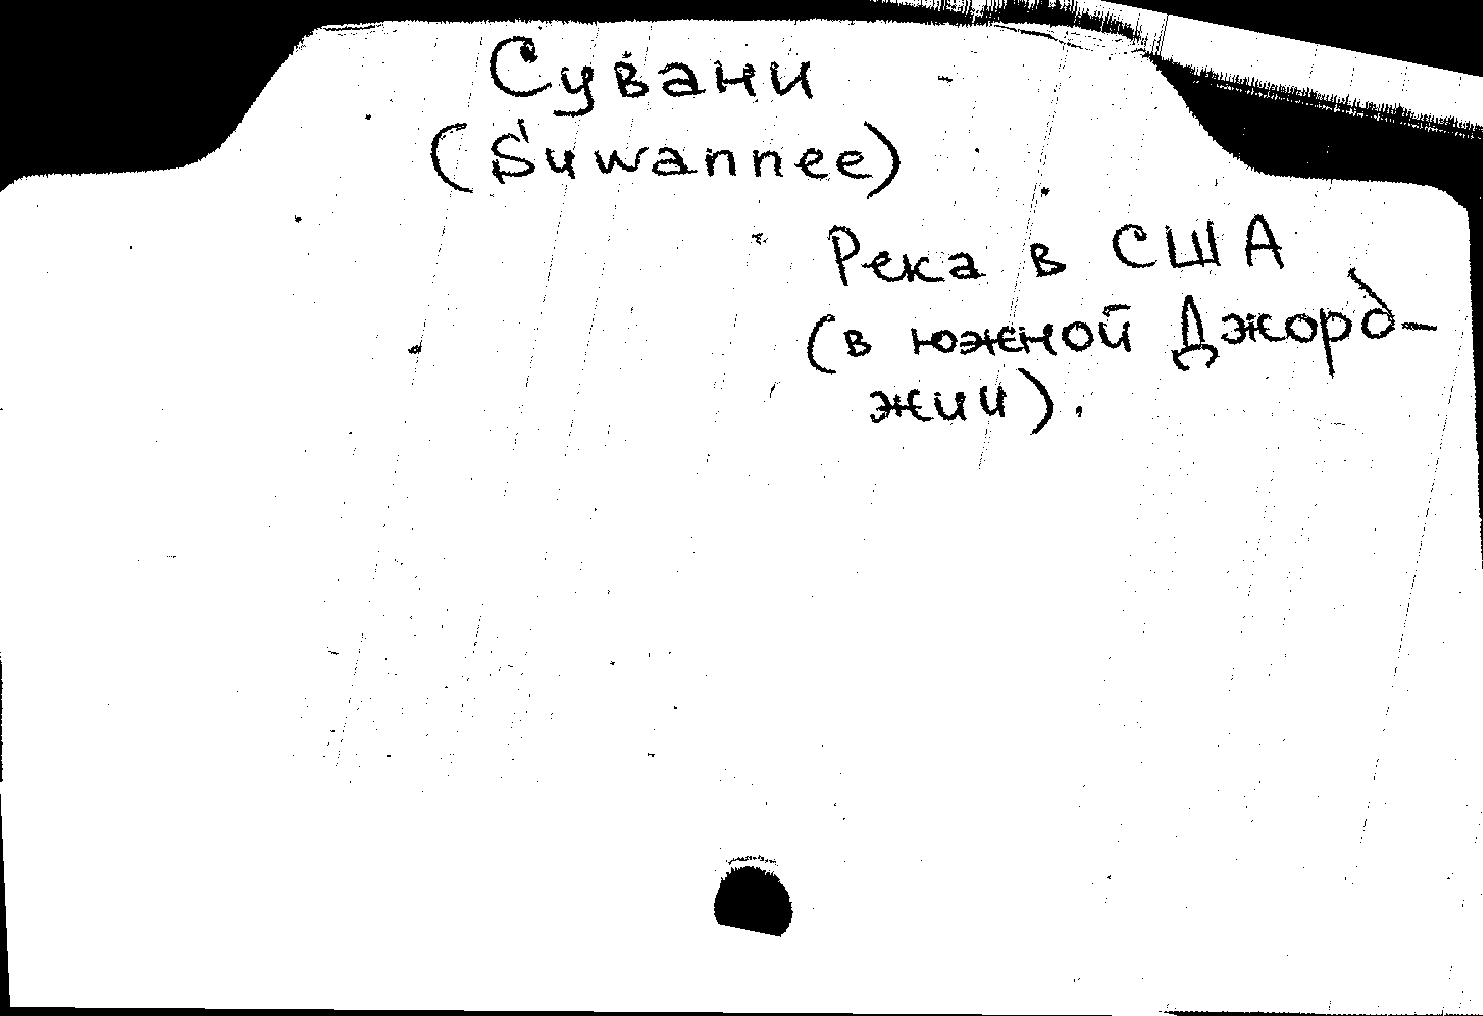 Сувани
(Suwannee)
Река в США
(в южной Джорд-
жии).